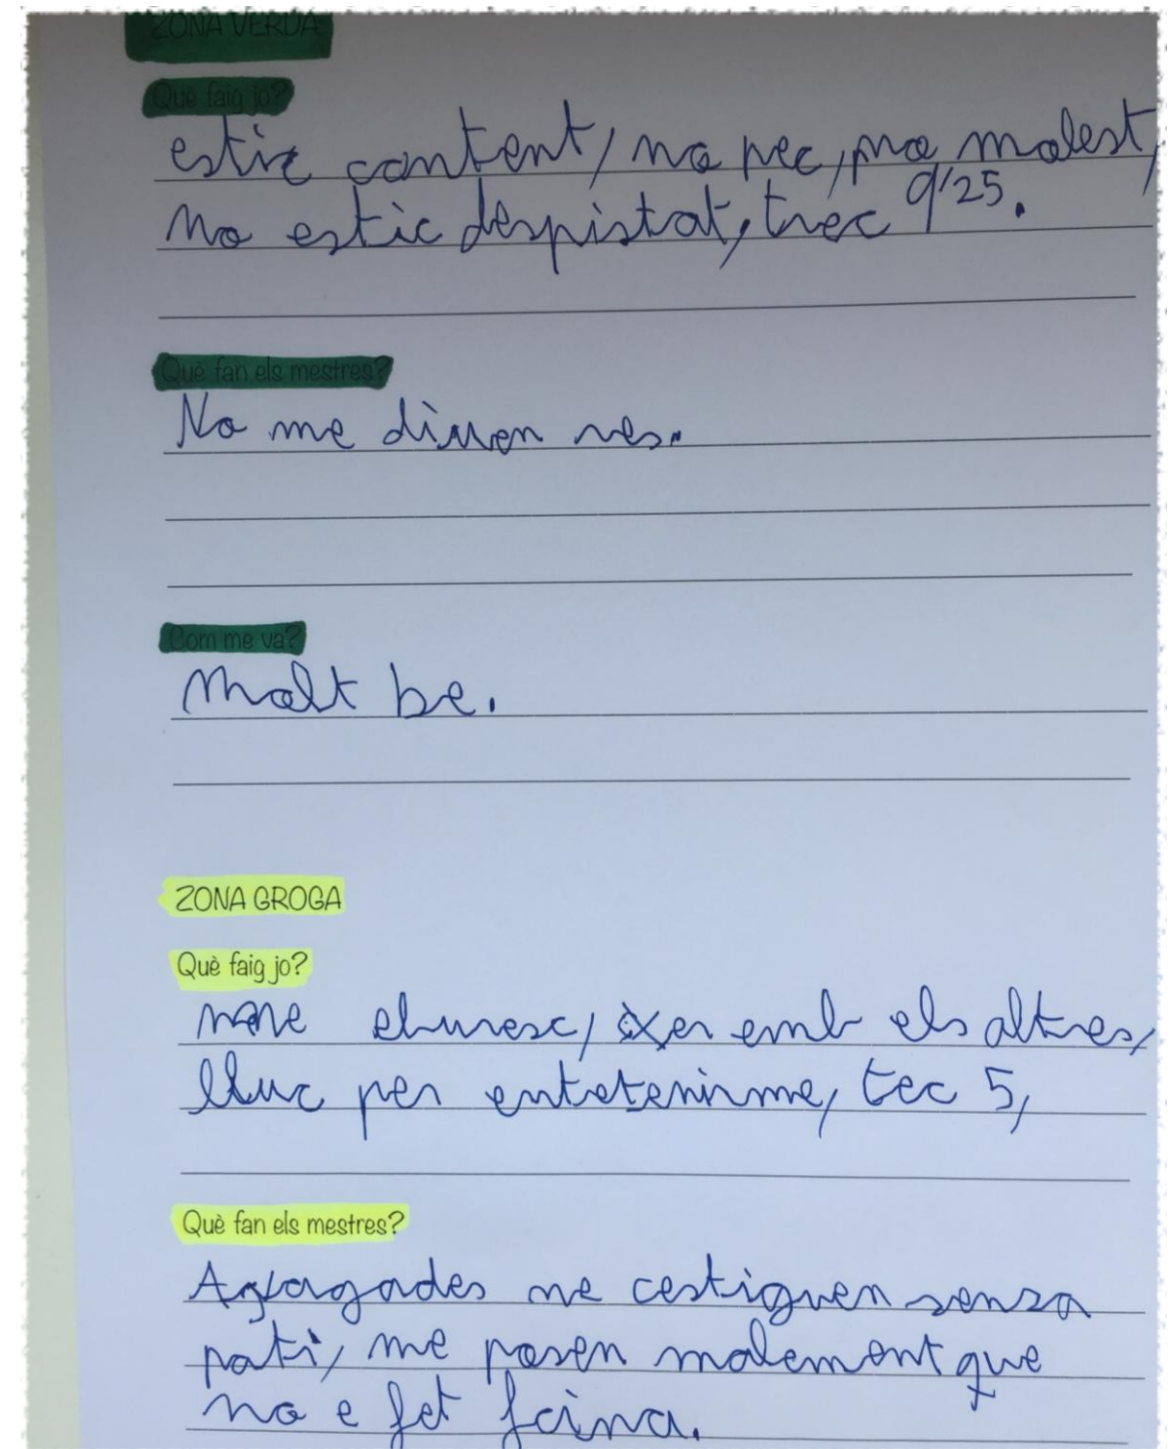 ZONA VERDA
Què faig jo?
estic content, no pec, no molest,
No estic despistat, trec 9'25.
Què fan els mestres?
No me diuen res.
Com me va?
Molt be.
ZONA GROGA
Què faig jo?
me eburesc, xer emb els altres,
lluc per entretenirme, tec 5,
Què fan els mestres?
me castiguen sensa
pati, me posen malement que
no e fet feina.